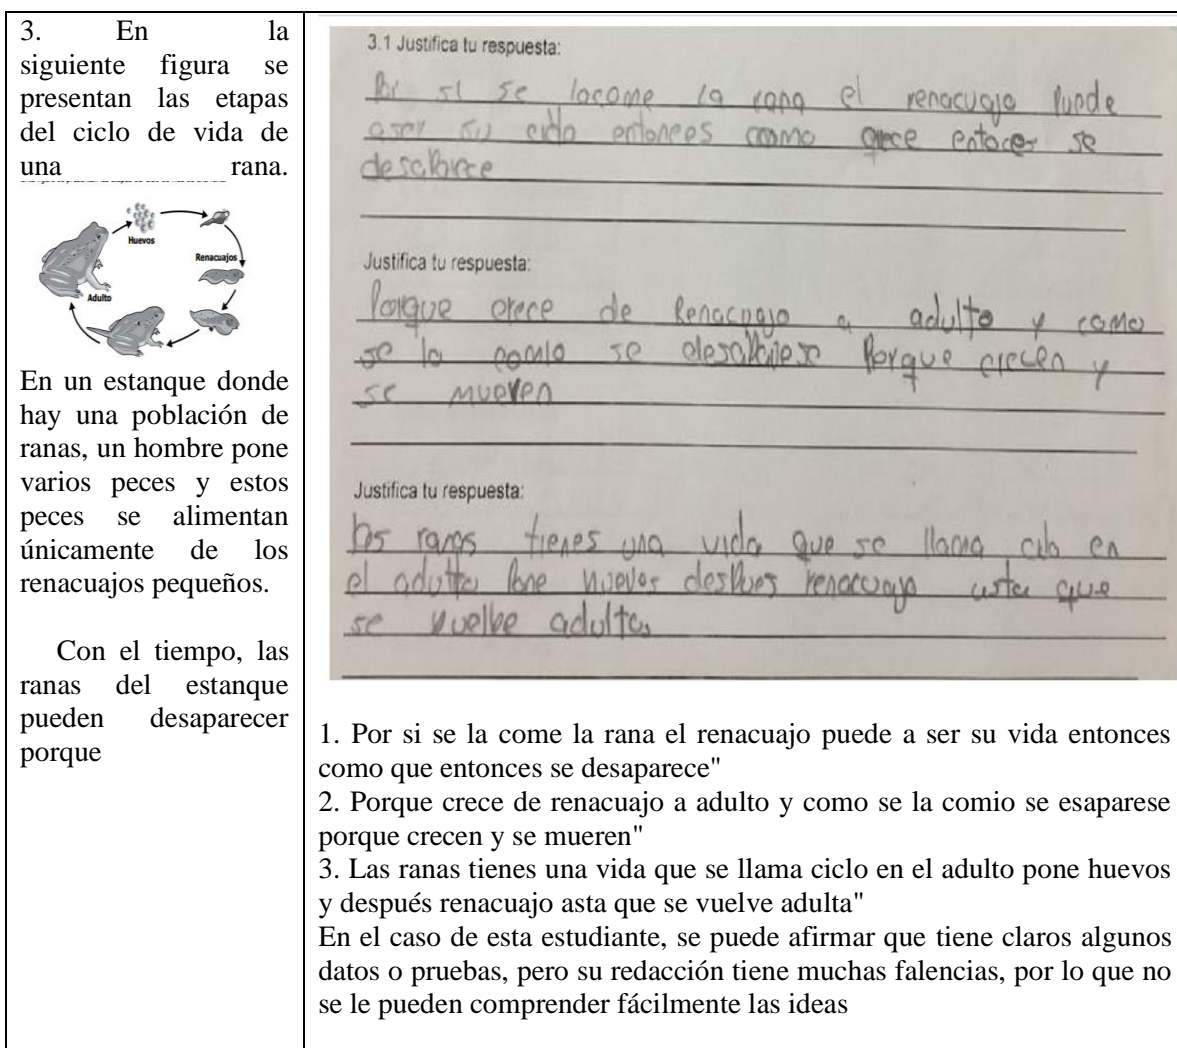 3. En la
siguiente figura se
presentan las etapas
del ciclo de vida de
una rana.
Huevos
Renacuajos
Adulto
En un estanque donde
hay una población de
ranas, un hombre pone
varios peces y estos
peces se alimentan
únicamente de los
renacuajos pequeños.
Con el tiempo, las
ranas del estanque
pueden desaparecer
porque
3.1 Justifica tu respuesta:
Por si se lacome la rana el renacuajo
aser su entonces como crece se
Justifica tu respuesta:
Porque crece de Renacuajo a adulto y como
se la comio se Porque crecen y
se mueren
Justifica tu respuesta:
ranas tienes una vida que se llama en
el adulto Pone huevos despues renacuajo usta que
se vuelbe adulta
1. Por si se la come la rana el renacuajo puede a ser su vida entonces
como que entonces se desaparece"
2. Porque crece de renacuajo a adulto y como se la comio se esaparese
porque crecen y se mueren"
3. Las ranas tienes una vida que se llama ciclo en el adulto pone huevos
y después renacuajo asta que se vuelve adulta"
En el caso de esta estudiante, se puede afirmar que tiene claros algunos
datos o pruebas, pero su redacción tiene muchas falencias, por lo que no
se le pueden comprender fácilmente las ideas